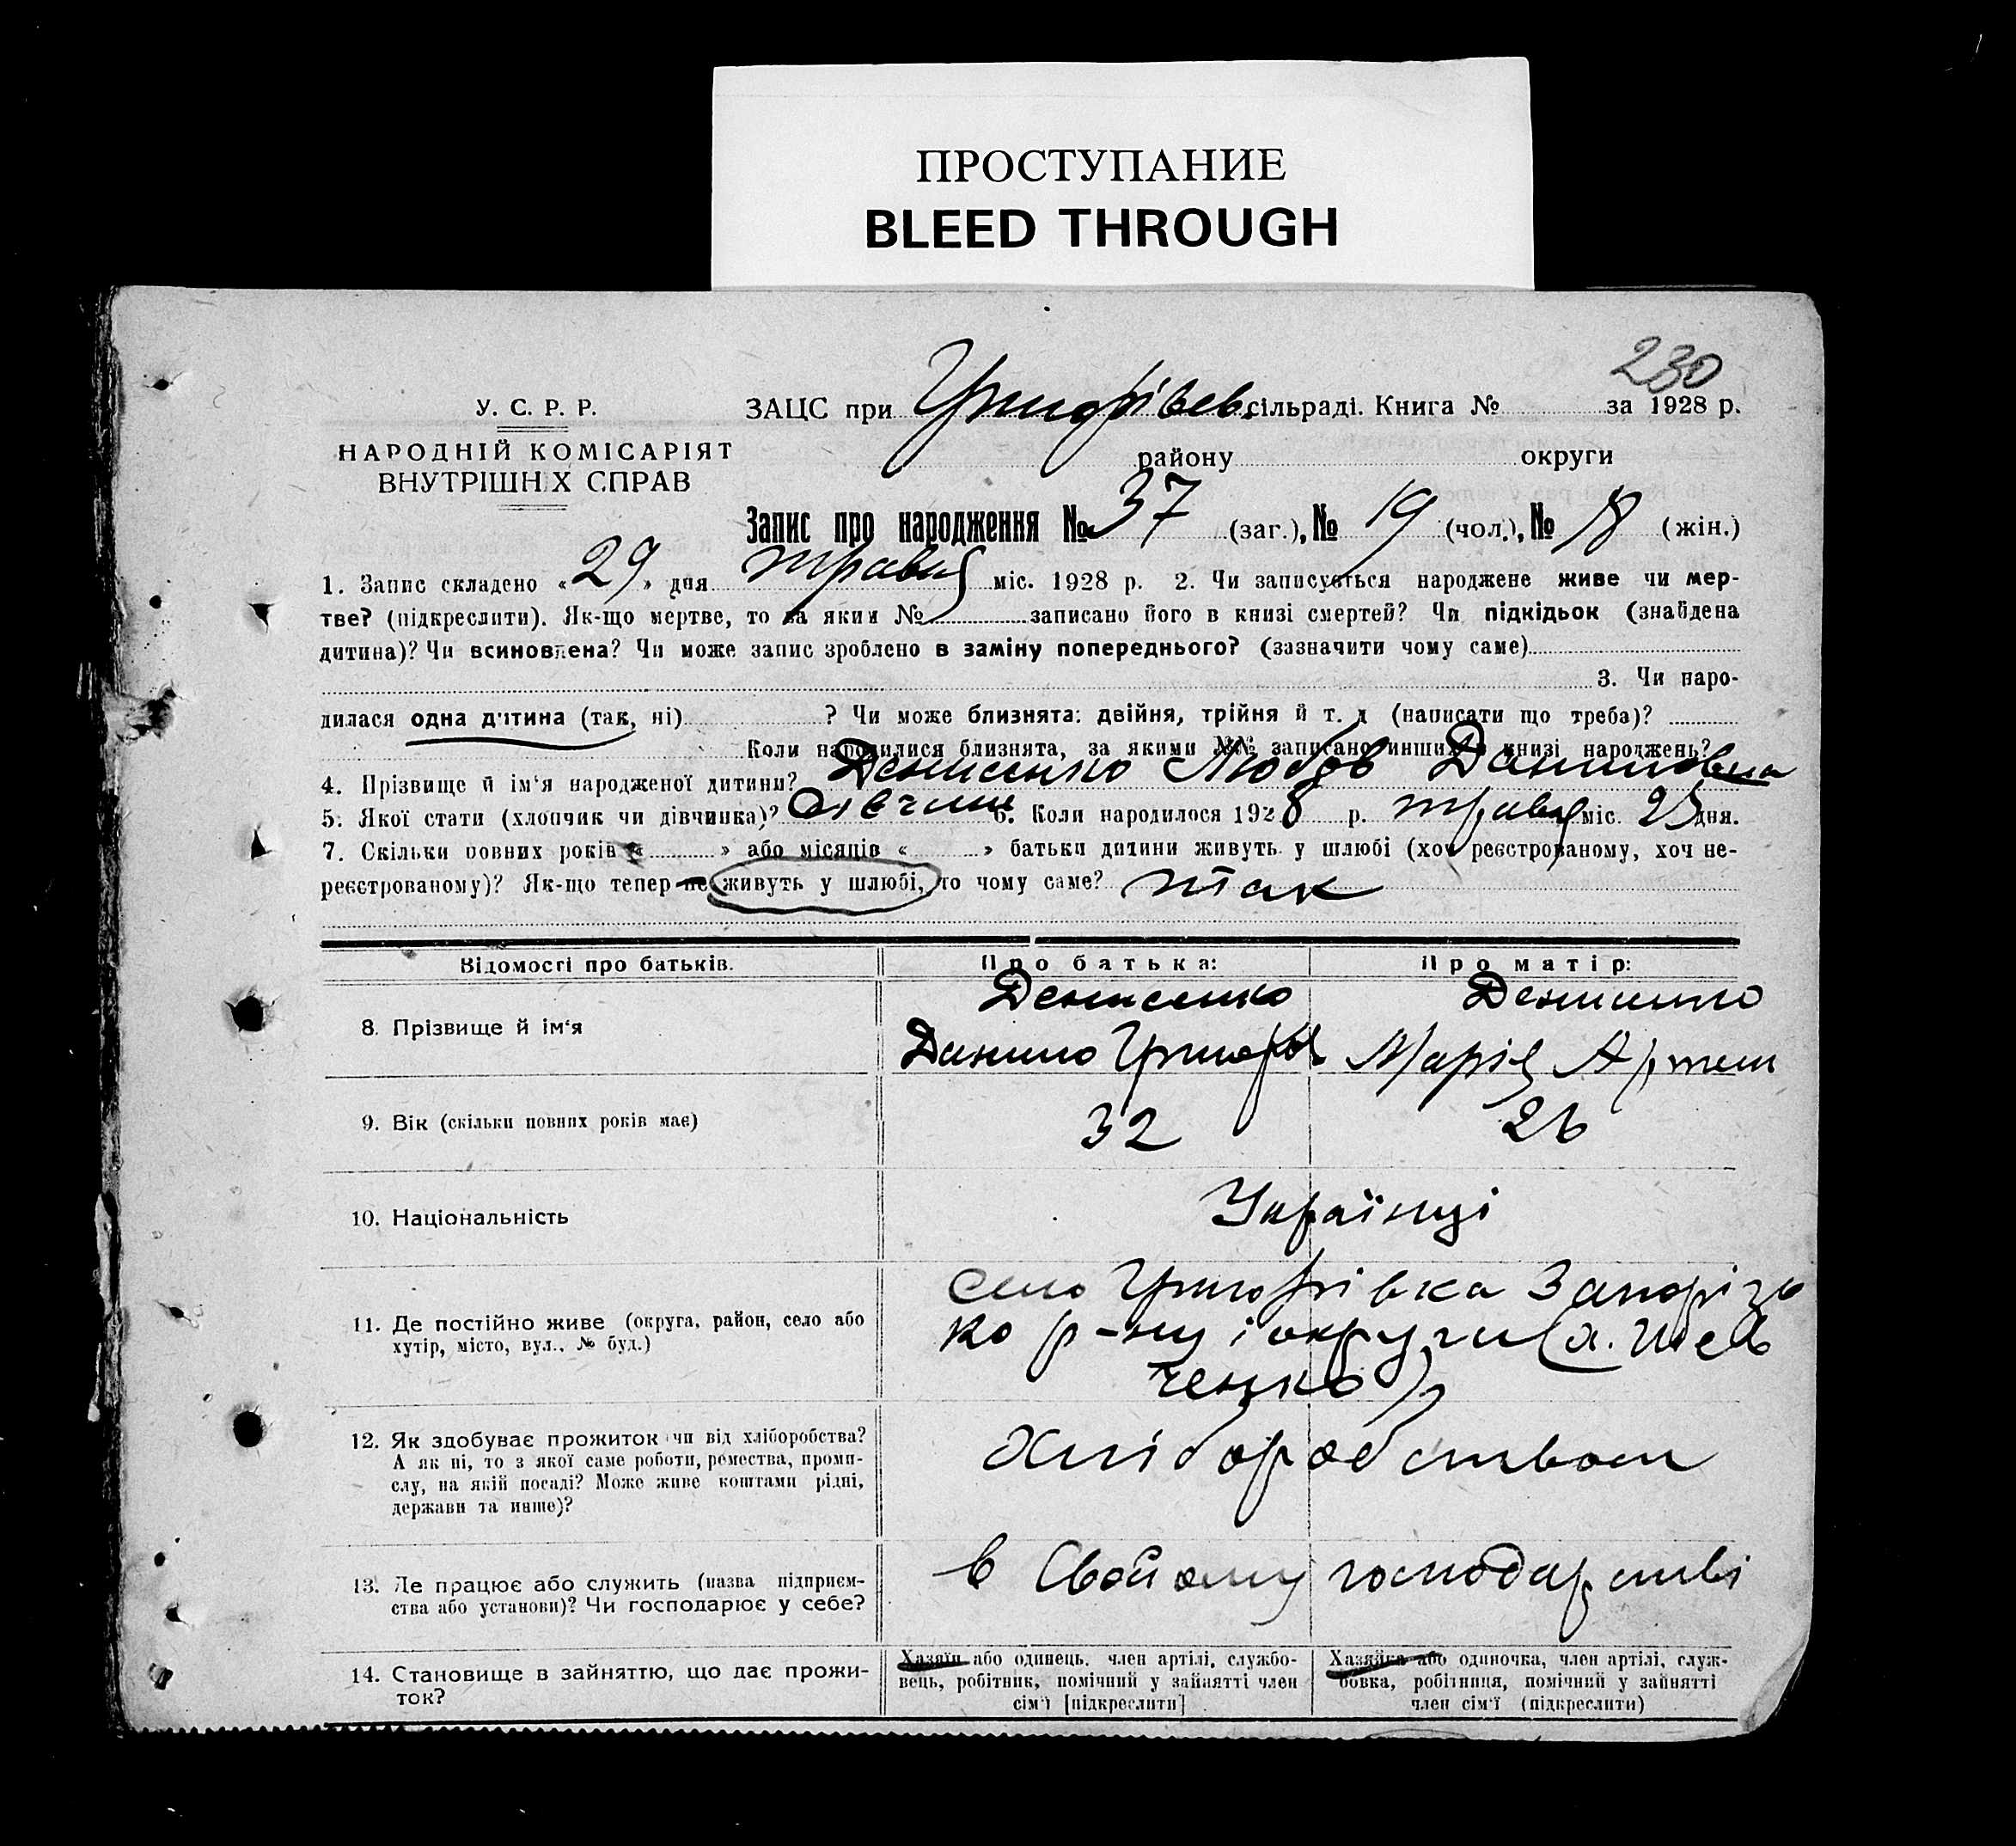 ПРОСТУПАНИЕ
BLEED THROUGH
230
У. С. Р. Р.
НАРОДНІЙ КОМІСАРІЯТ
ВНУТРІШНІХ СПРАВ
ЗАЦС при Григорівск. сільраді. Книга № за 1928 р.
району округи
Запис про народження № 37 (заг.), № 19 (чол.), № 18 (жін.)
1. Запис складено «29» дня травня міс. 1928 р. 2. Чи записується народжене живе чи мер-
тве? (підкреслити). Як-що мертве, то за яким № записано його в книзі смертей? Чи підкідьок (знайдена
дитина)? Чи всиновлена? Чи може запис зроблено в заміну попереднього? (зазначити чому саме)
3. Чи наро-
дилася одна дитина (так, ні) ? Чи може близнята: двійня, трійня й т. д (написати що треба)?
Коли народилися близнята, за якими №№ записано инших в книзі народжень?
4. Прізвище й ім'я народженої дитини? Денисенко Любов Даниловна
5. Якої статі (хлопчик чи дівчинка)? дівчин 6. Коли народилося 1928 р. травня міс. 25 дня.
7. Скільки повних років « » або місяців « » батьки дитини живуть у шлюбі (хоч реєстрованому, хоч не-
реєстрованому)? Як-що тепер не живуть у шлюбі, то чому саме? так
Відомості про батьків. Про батька: Про матір:
8. Прізвище й ім'я Денисенко Данило Григоров Денисенко Марія Артем
9. Вік (скільки повних років має) 32 26
10. Національність Українці
11. Де постійно живе (округа, район, село або
хутір, місто, вул., № буд.)
село Григорівка Запоріз
ко р-ну і округи (а. Шев
ченко)
12. Як здобуває прожиток чи від хліборобства?
А як ні, то з якої саме роботи, ремества, проми-
слу, на якій посаді? Може живе коштами рідні,
держави та инше)?
Хліборобством
13. Де працює або служить (назва підприєм-
ства або установи)? Чи господарює у себе?
в Свойому господарстві
14. Становище в зайняттю, що дає прожи-
ток?
Хазяїн або одинець, член артілі, службо-
вець, робітник, помічний у зайнятті член
сім'ї [підкреслити]
Хазяйка або одиночка, член артілі, служ-
бовка, робітниця, помічний у зайнятті
член сім'ї (підкреслити)